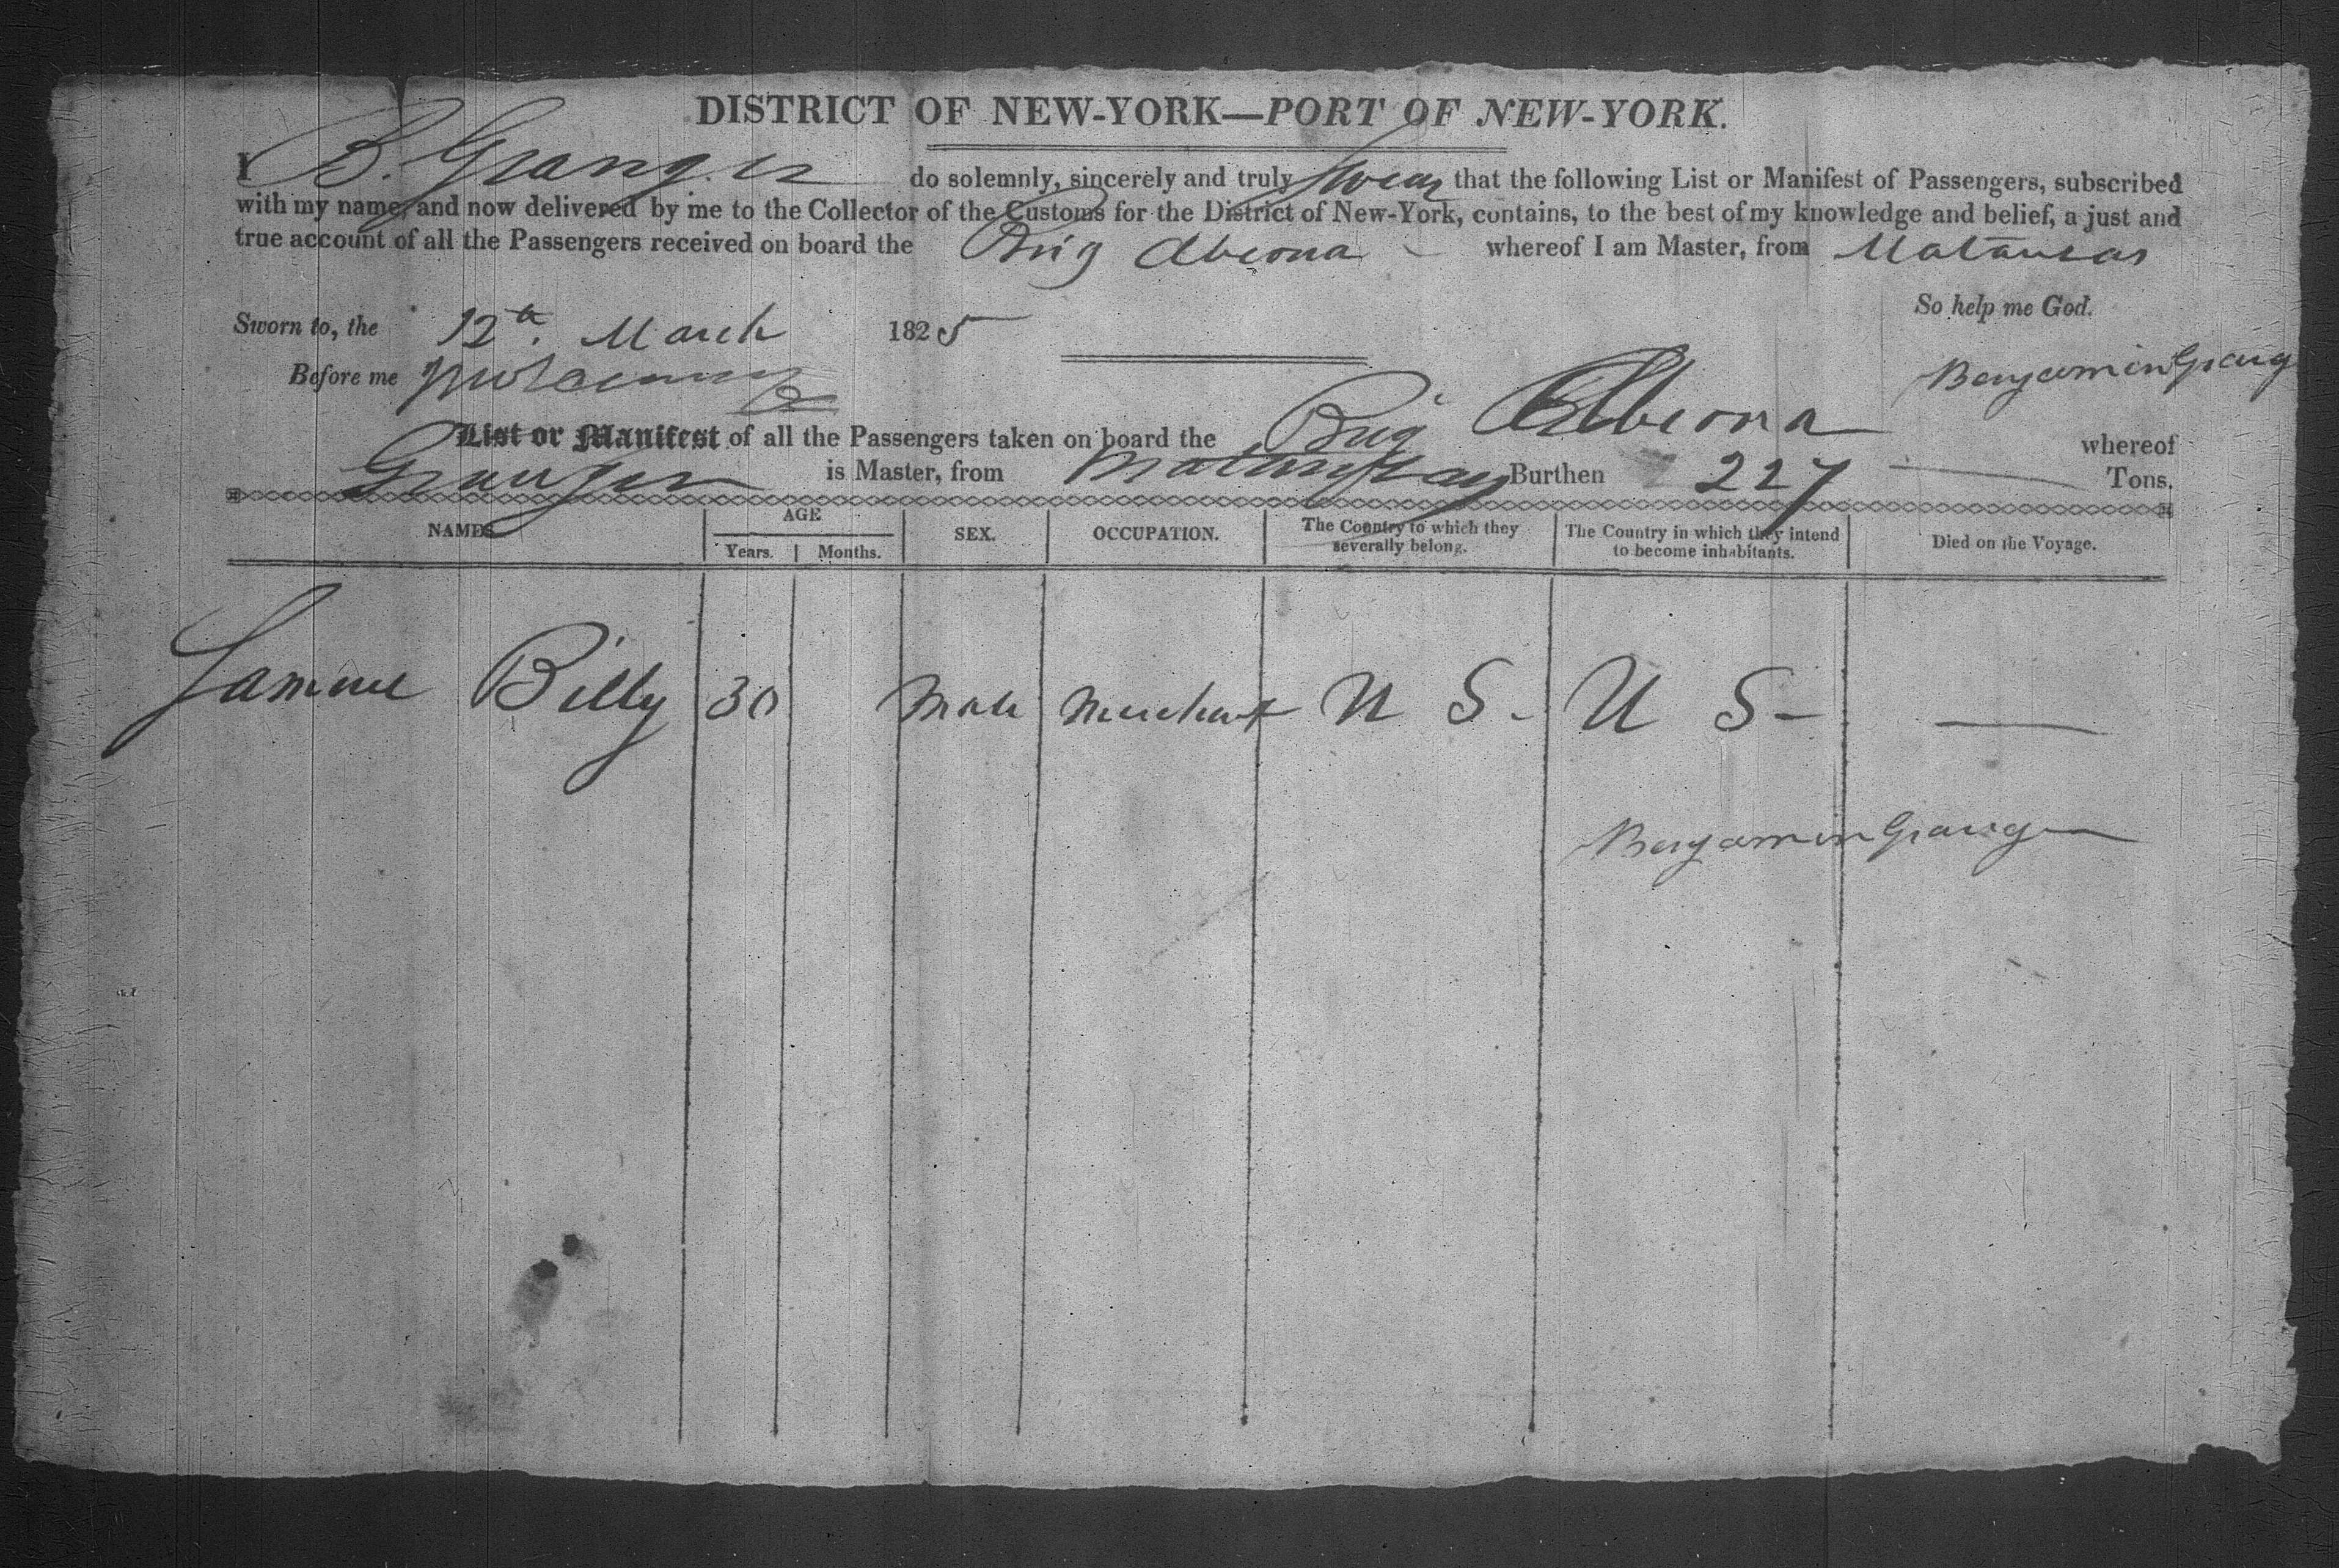 DISTRICT OF NEW-YORK—PORT OF NEW-YORK.
I B. Granger do solemnly, sincerely and truly Swear that the following List or Manifest of Passengers, subscribed
with my name, and now delivered by me to the Collector of the Customs for the District of New-York, contains, to the best of my knowledge and belief, a just and
true account of all the Passengers received on board the Brig Abeona whereof I am Master, from Matansas
So help me God.
Sworn to, the 12th. March 1825
Before me
Benjamin Grang
List or Manifest of all the Passengers taken on board the Brig Abeona whereof
Granger is Master, from Burthen 227 Tons.
NAMES AGE SEX. OCCUPATION. The Country to which they severally belong. The Country in which they intend to become inhabitants. Died on the Voyage.
Years. Months.
Billy 30 Male Merchant U S - U S - —
Benjamin Granger